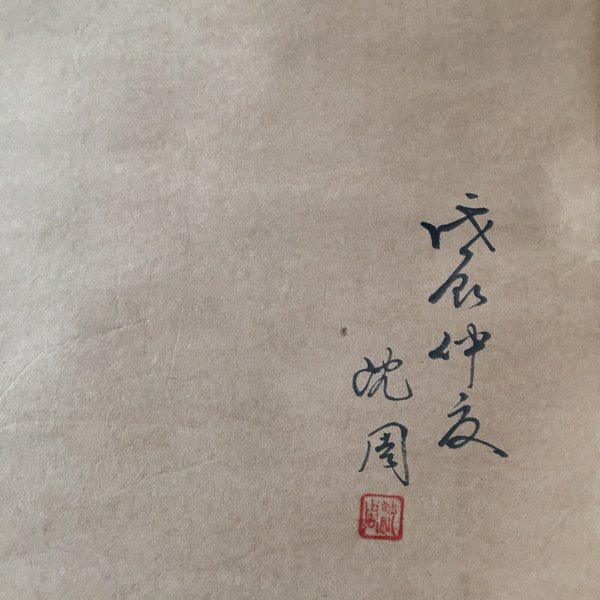 戊辰仲夏
沈周